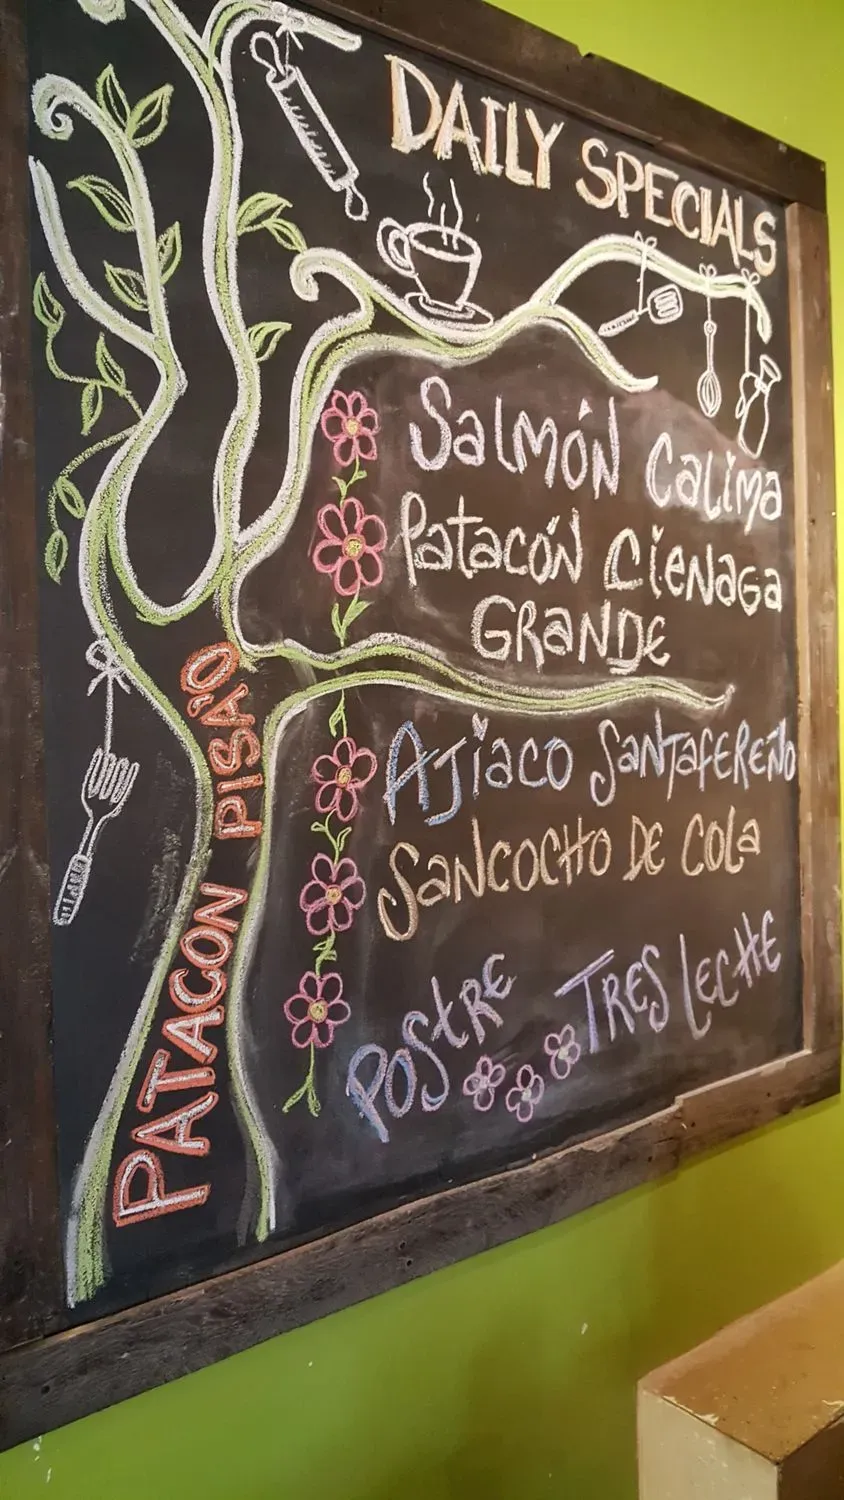 DAILY SPECIALS
Salmón Calima
Patacón Cienaga
GRANDE
Ajiaco Santafereño
Sancocho de Cola
Postre Tres Leche
PATACON PISA'O